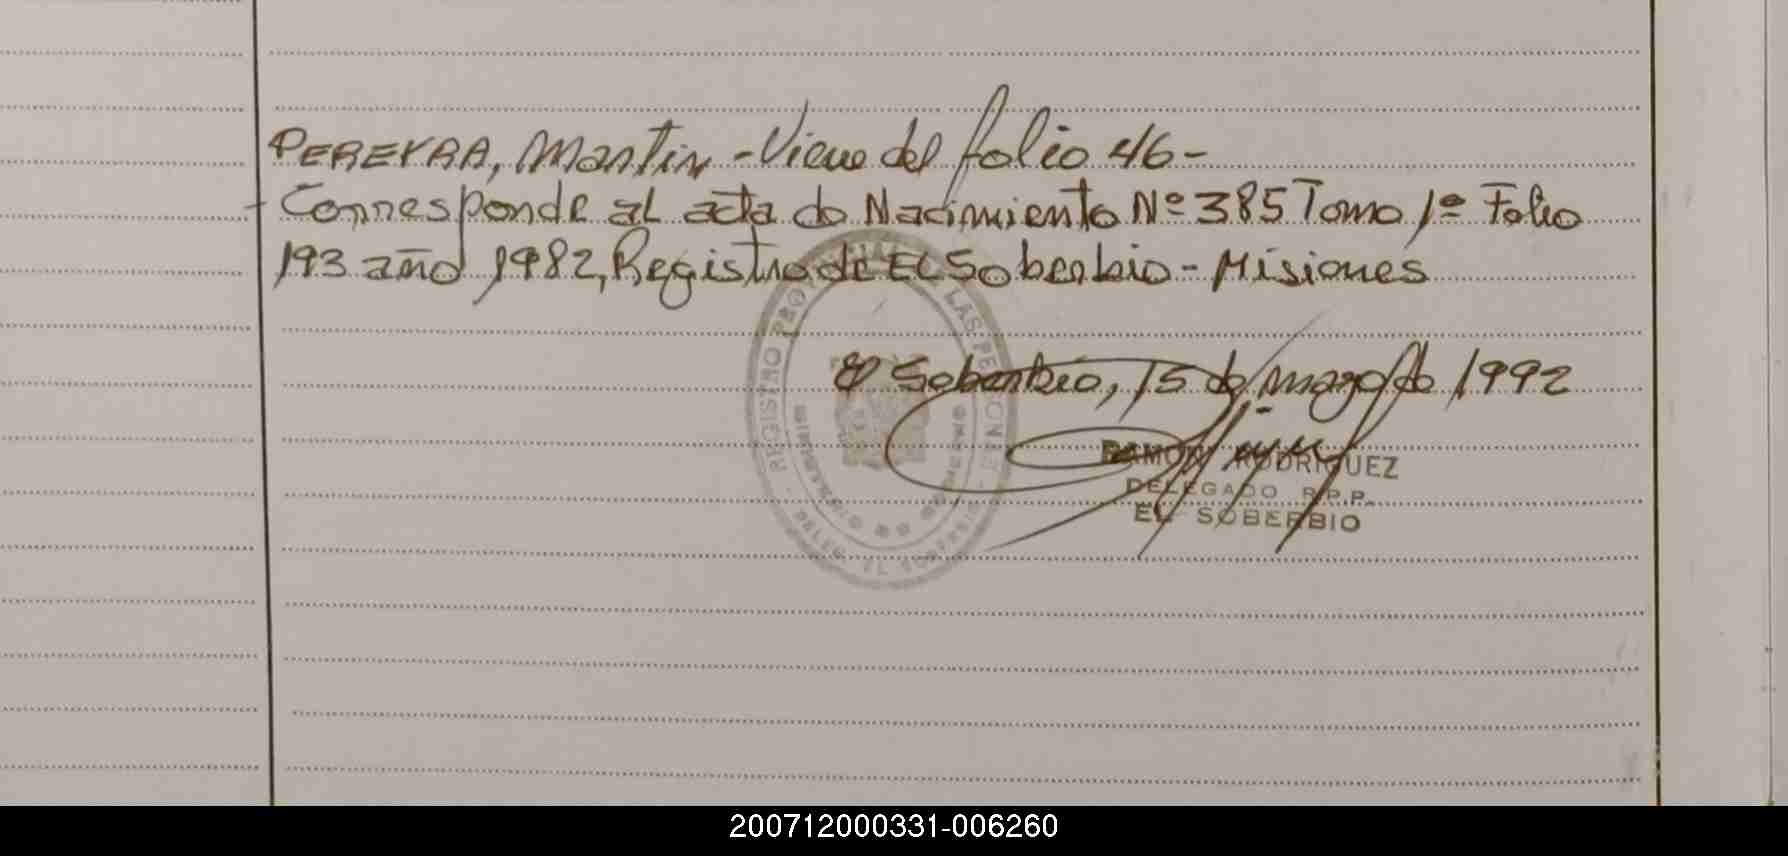 PEREYRA, Martin - Viene del folio 46 -
- Corresponde al acta de Nacimiento Nº 385 Tomo 1º Folio
193 año 1982, Registro de El Soberbio - Misiones
El Soberbio, 15 de marzo de 1992
RAMON RODRIGUEZ
DELEGADO R.P.P.
EL SOBERBIO
REGISTRO PROVINCIAL DE LAS PERSONAS
DELEG. EL SOBERBIO
200712000331-006260